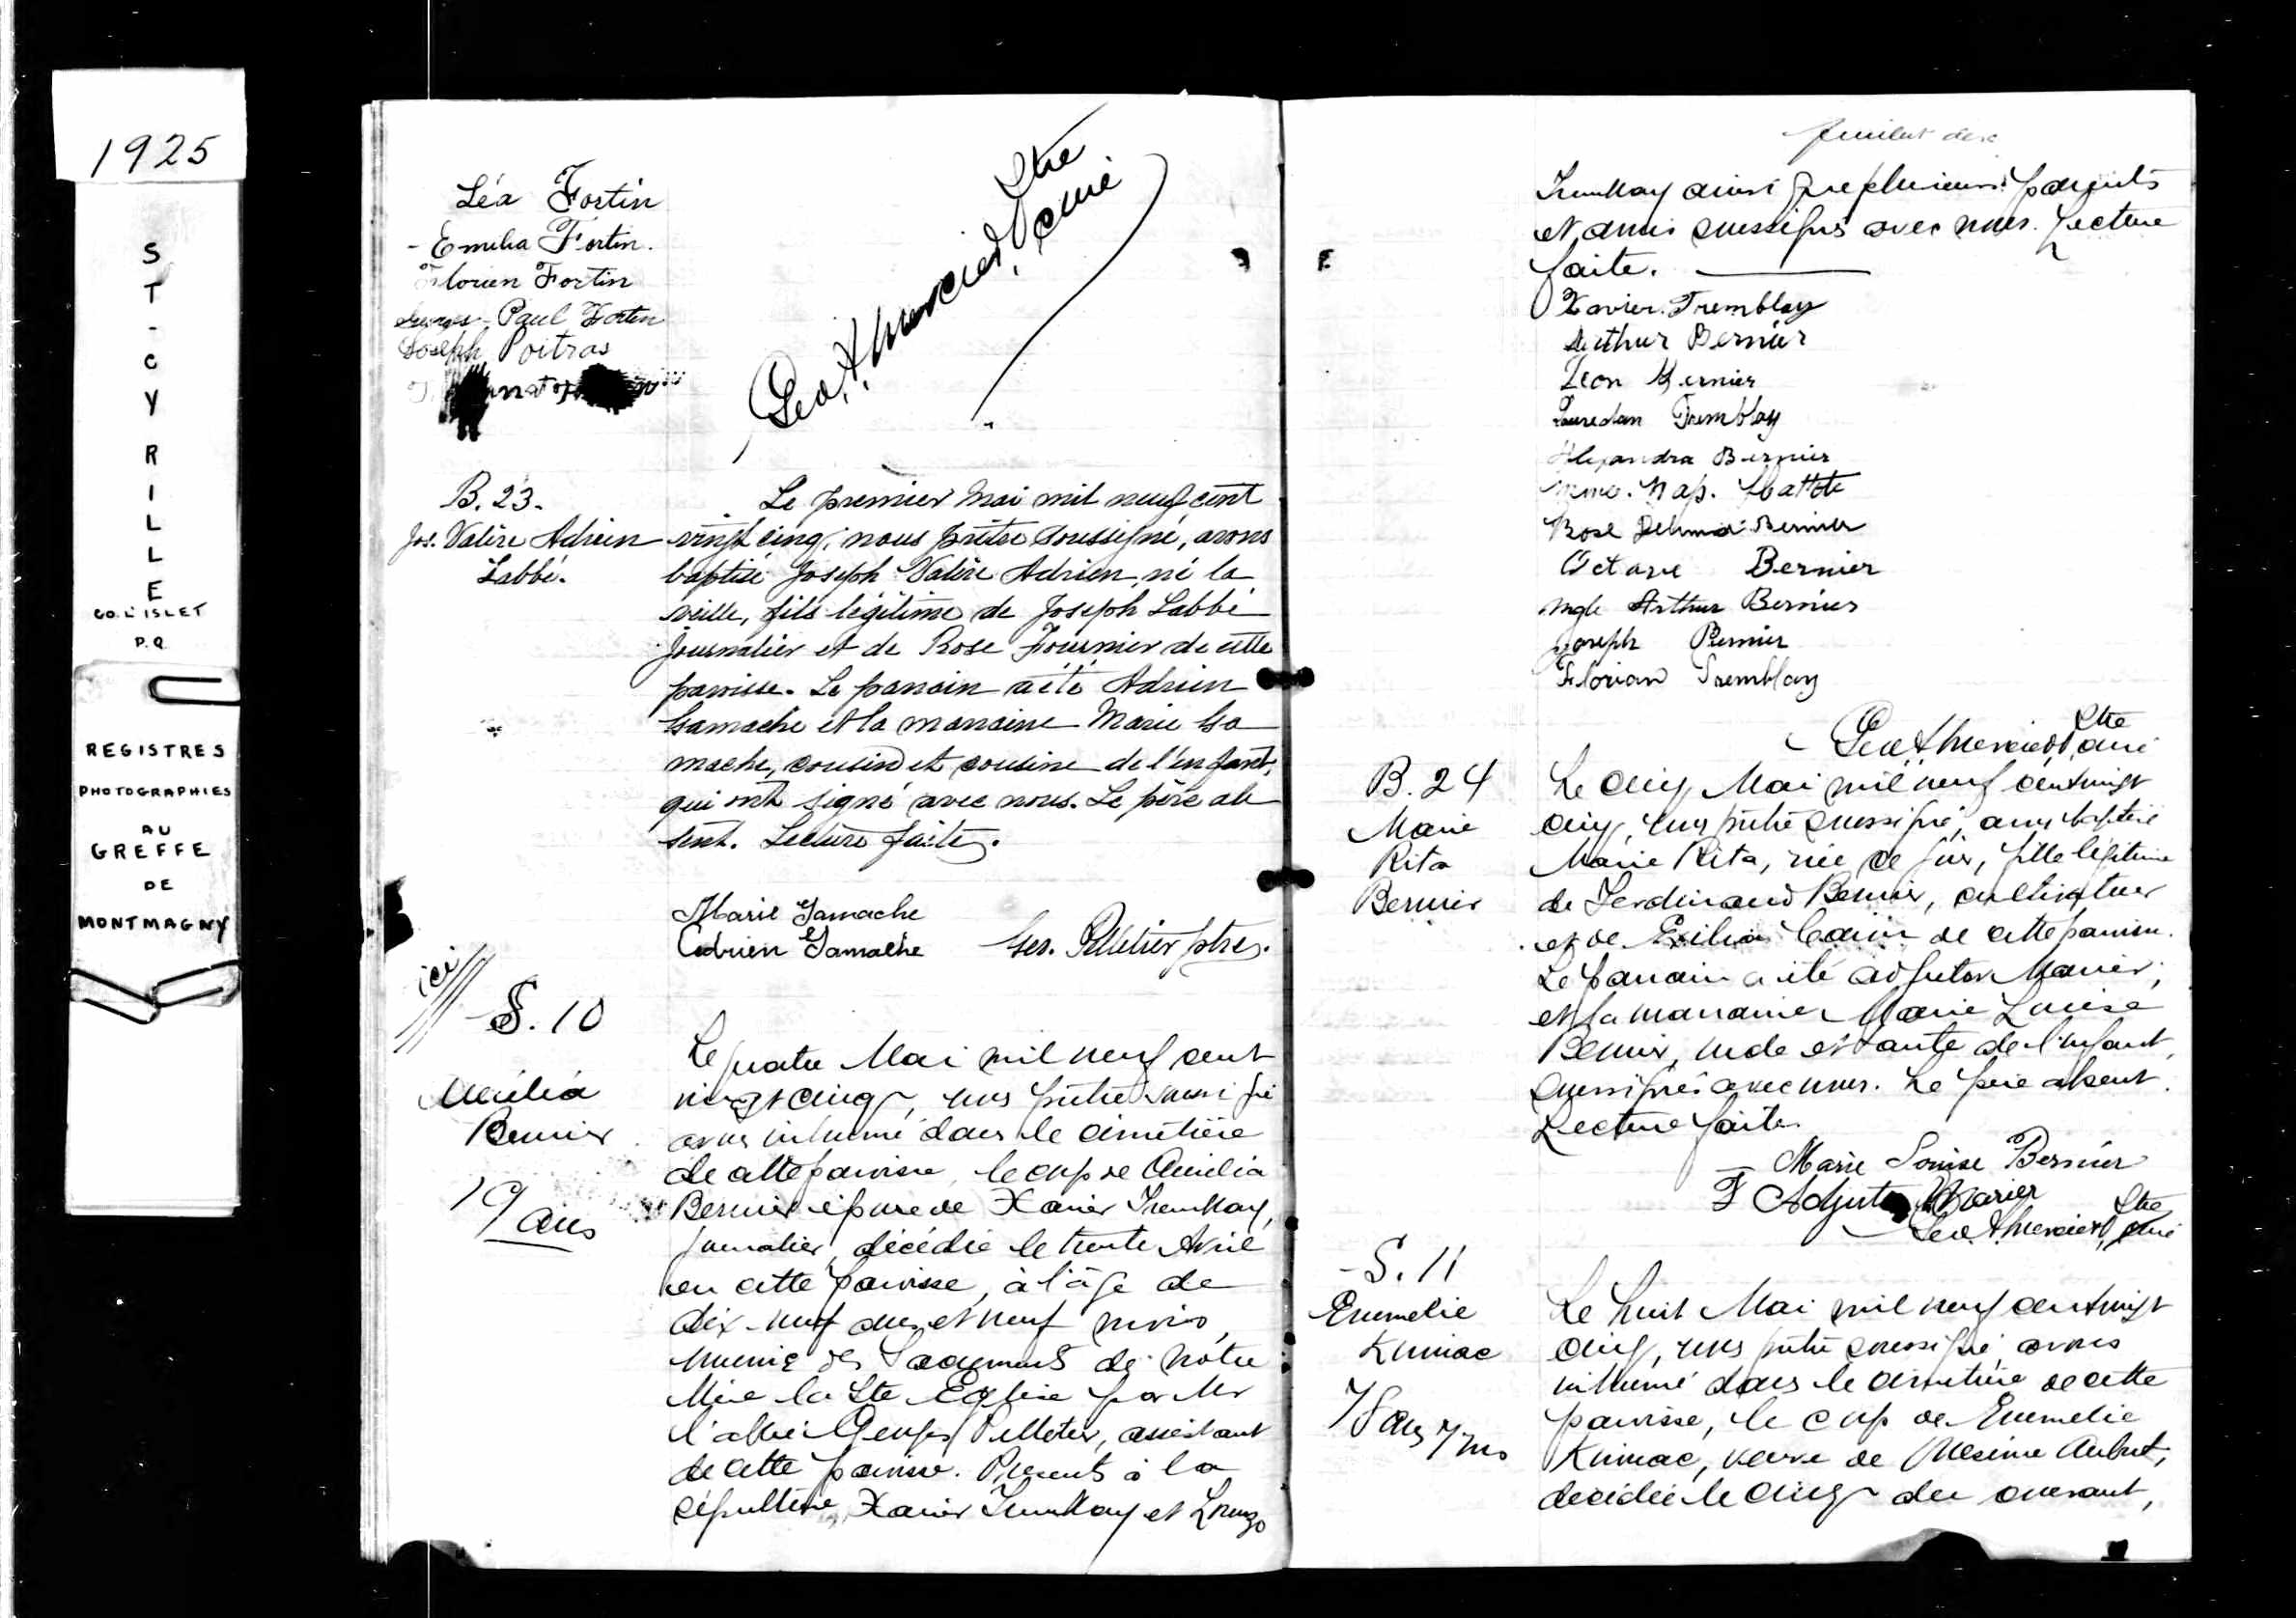 1925
ST-CYRILLE
CO. L'ISLET
P.Q.
REGISTRES
PHOTOGRAPHIES
AU
GREFFE
DE
MONTMAGNY
Léa Fortin
Emilia Fortin.
Florien Fortin
Paul Fortin
Joseph Poitras
Geo. A. Mercier, Ptre
curé
B. 23.
Jos. Valère Adrien
Labbé.
Le premier Mai mil neuf cent
vingt cinq, nous prêtre soussigné, avons
baptisé Joseph Valère Adrien, né la
veille, fils légitime de Joseph Labbé
journalier et de Rose Fournier de cette
paroisse. Le parrain a été Adrien
Gamache et la marraine Marie Ga
mache, cousin et cousine de l'enfant,
qui ont signé avec nous. Le père ab
sent. Lecture faite.
Marie Gamache
Adrien Gamache Geo. Pelletier ptre.
ici
S. 10
Aurélia
Bernier
19 ans
Le quatre Mai mil neuf cent
vingt cinq, nous prêtre soussigné
avons inhumé dans le cimetière
de cette paroisse, le corps de Aurélia
Bernier épouse de Xavier Tremblay,
journalier, décédée le trente Avril
en cette paroisse, à l'âge de
dix-neuf ans et neuf mois,
munie des Sacrements de Notre
Mère la Ste Eglise par Mr
l'abbé Georges Pelletier, assistant
de cette paroisse. Présents à la
sépulture, Xavier Tremblay et Lorenzo
feuillet
Tremblay ainsi que plusieurs parents
et amis soussignés avec nous. Lecture
faite.
Xavier Tremblay
Arthur Bernier
Léon Bernier
Tremblay
Alexandra Bernier
Mme. Nap.
Rose Bernier
Octave Bernier
Arthur Bernier
Joseph Bernier
Florian Tremblay
Geo. A. Mercier, Ptre
curé
B. 24
Marie
Rita
Bernier
Le cinq Mai mil neuf cent vingt
cinq, nous prêtre soussigné, avons baptisé
Marie Rita, née ce jour, fille légitime
de Ferdinand Bernier, cultivateur
et de Exilia Caron de cette paroisse.
Le parrain a été Adjutor Marier,
et la marraine Marie Louise
Bernier, oncle et tante de l'enfant,
soussignés avec nous. Le père absent.
Lecture faite.
Marie Louise Bernier
F Adjutor Marier
Geo. A. Mercier, Ptre
curé
S. 11
Emmelie
Kimiac
Le huit Mai mil neuf cent vingt
cinq, nous prêtre soussigné avons
inhumé dans le cimetière de cette
paroisse, le corps de Emmelie
Kimiac, veuve de Onésime Aubut,
décédée le cinq du courant,